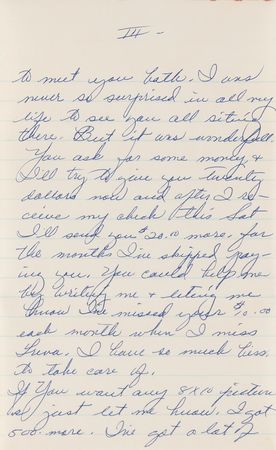 III -
to meet you both. I was
never so surprised in all my
life to see you all sitting
there. But it was wonderfull.
You ask for some money &
I'll try to give you twenty
dollars now and after I re-
ceive my check this Sat
I'll send you $20.00 more. for
the months I've skipped pay-
ing you. You could help me
by writing me & leting me
know I've missed your $10.00
each month when I miss
Luva. I have so much biss.
to take care of.
If You want any 8x10 picture
s just let me know. I got
500 more. I've got a lot of